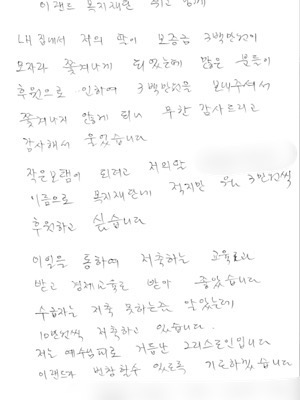 이랜드 복지재단
LH 집에서 저의 딸이 보증금 3백만원이
모자라 쫓겨나게 되었는데 많은 분들이
후원으로 인하여 3백만원을 보내주셔서
쫓겨나지 않게 되니 무한 감사드리고
감사해서 울었습니다
작은보탬이 되려고 저의
이름으로 복지재단에 적지만 3만원씩
후원하고 싶습니다
이일을 통하여 저축하는 교육도
받고 경제교육도 받아 좋았습니다
수급자는 저축 못하는줄 알았는데
10만원씩 저축하고 있습니다.
저는 예수님피로 거듭난 그리스도인입니다
이랜드가 번창할수 있도록 기도하겠습니다